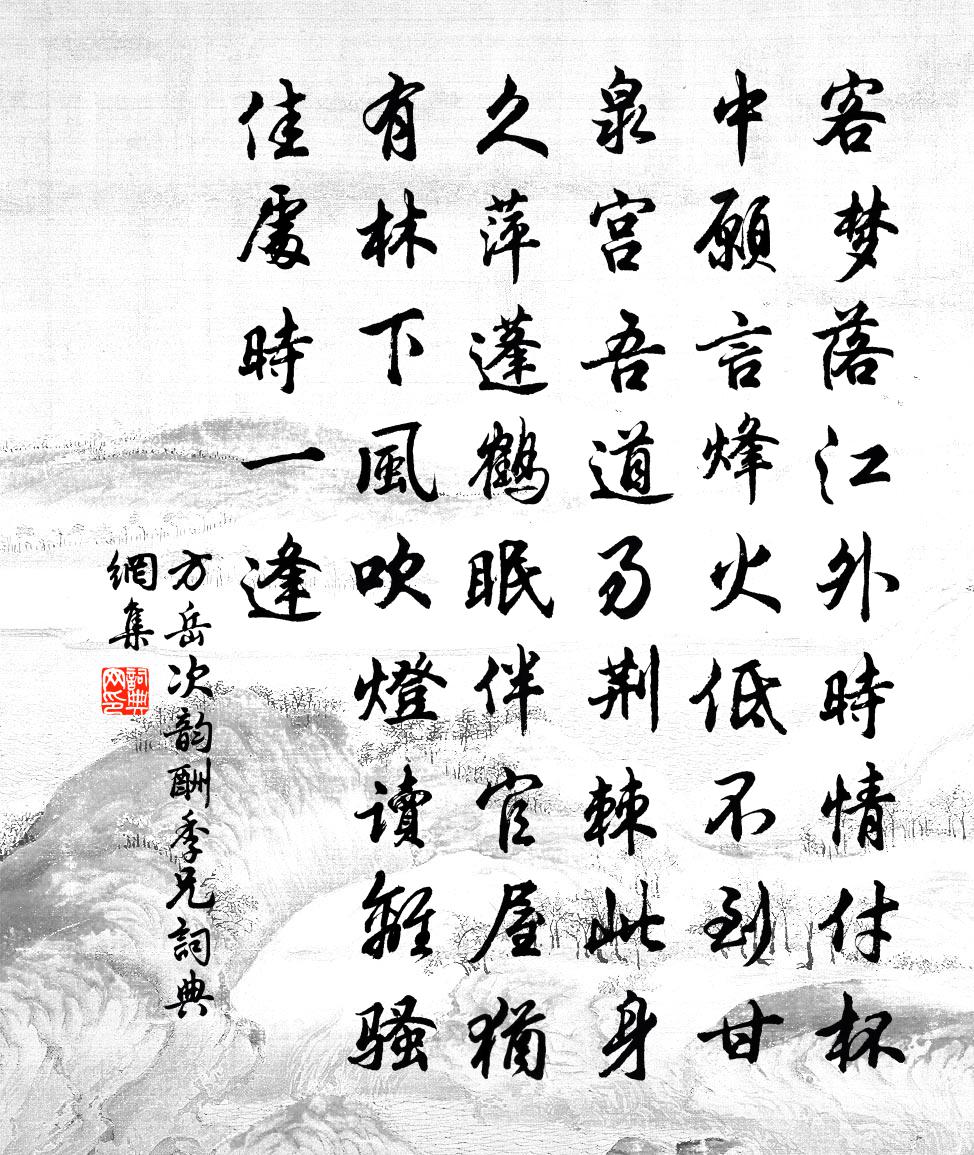 客梦落江外時情付杯
中願言烽火低不到甘
泉宫吾道易荆棘此身
久萍蓬鶴眠伴官屋猶
有林下風吹燈讀離騷
佳處時一逢
方岳次韵酬季兄詞典
網集
詞典
网印